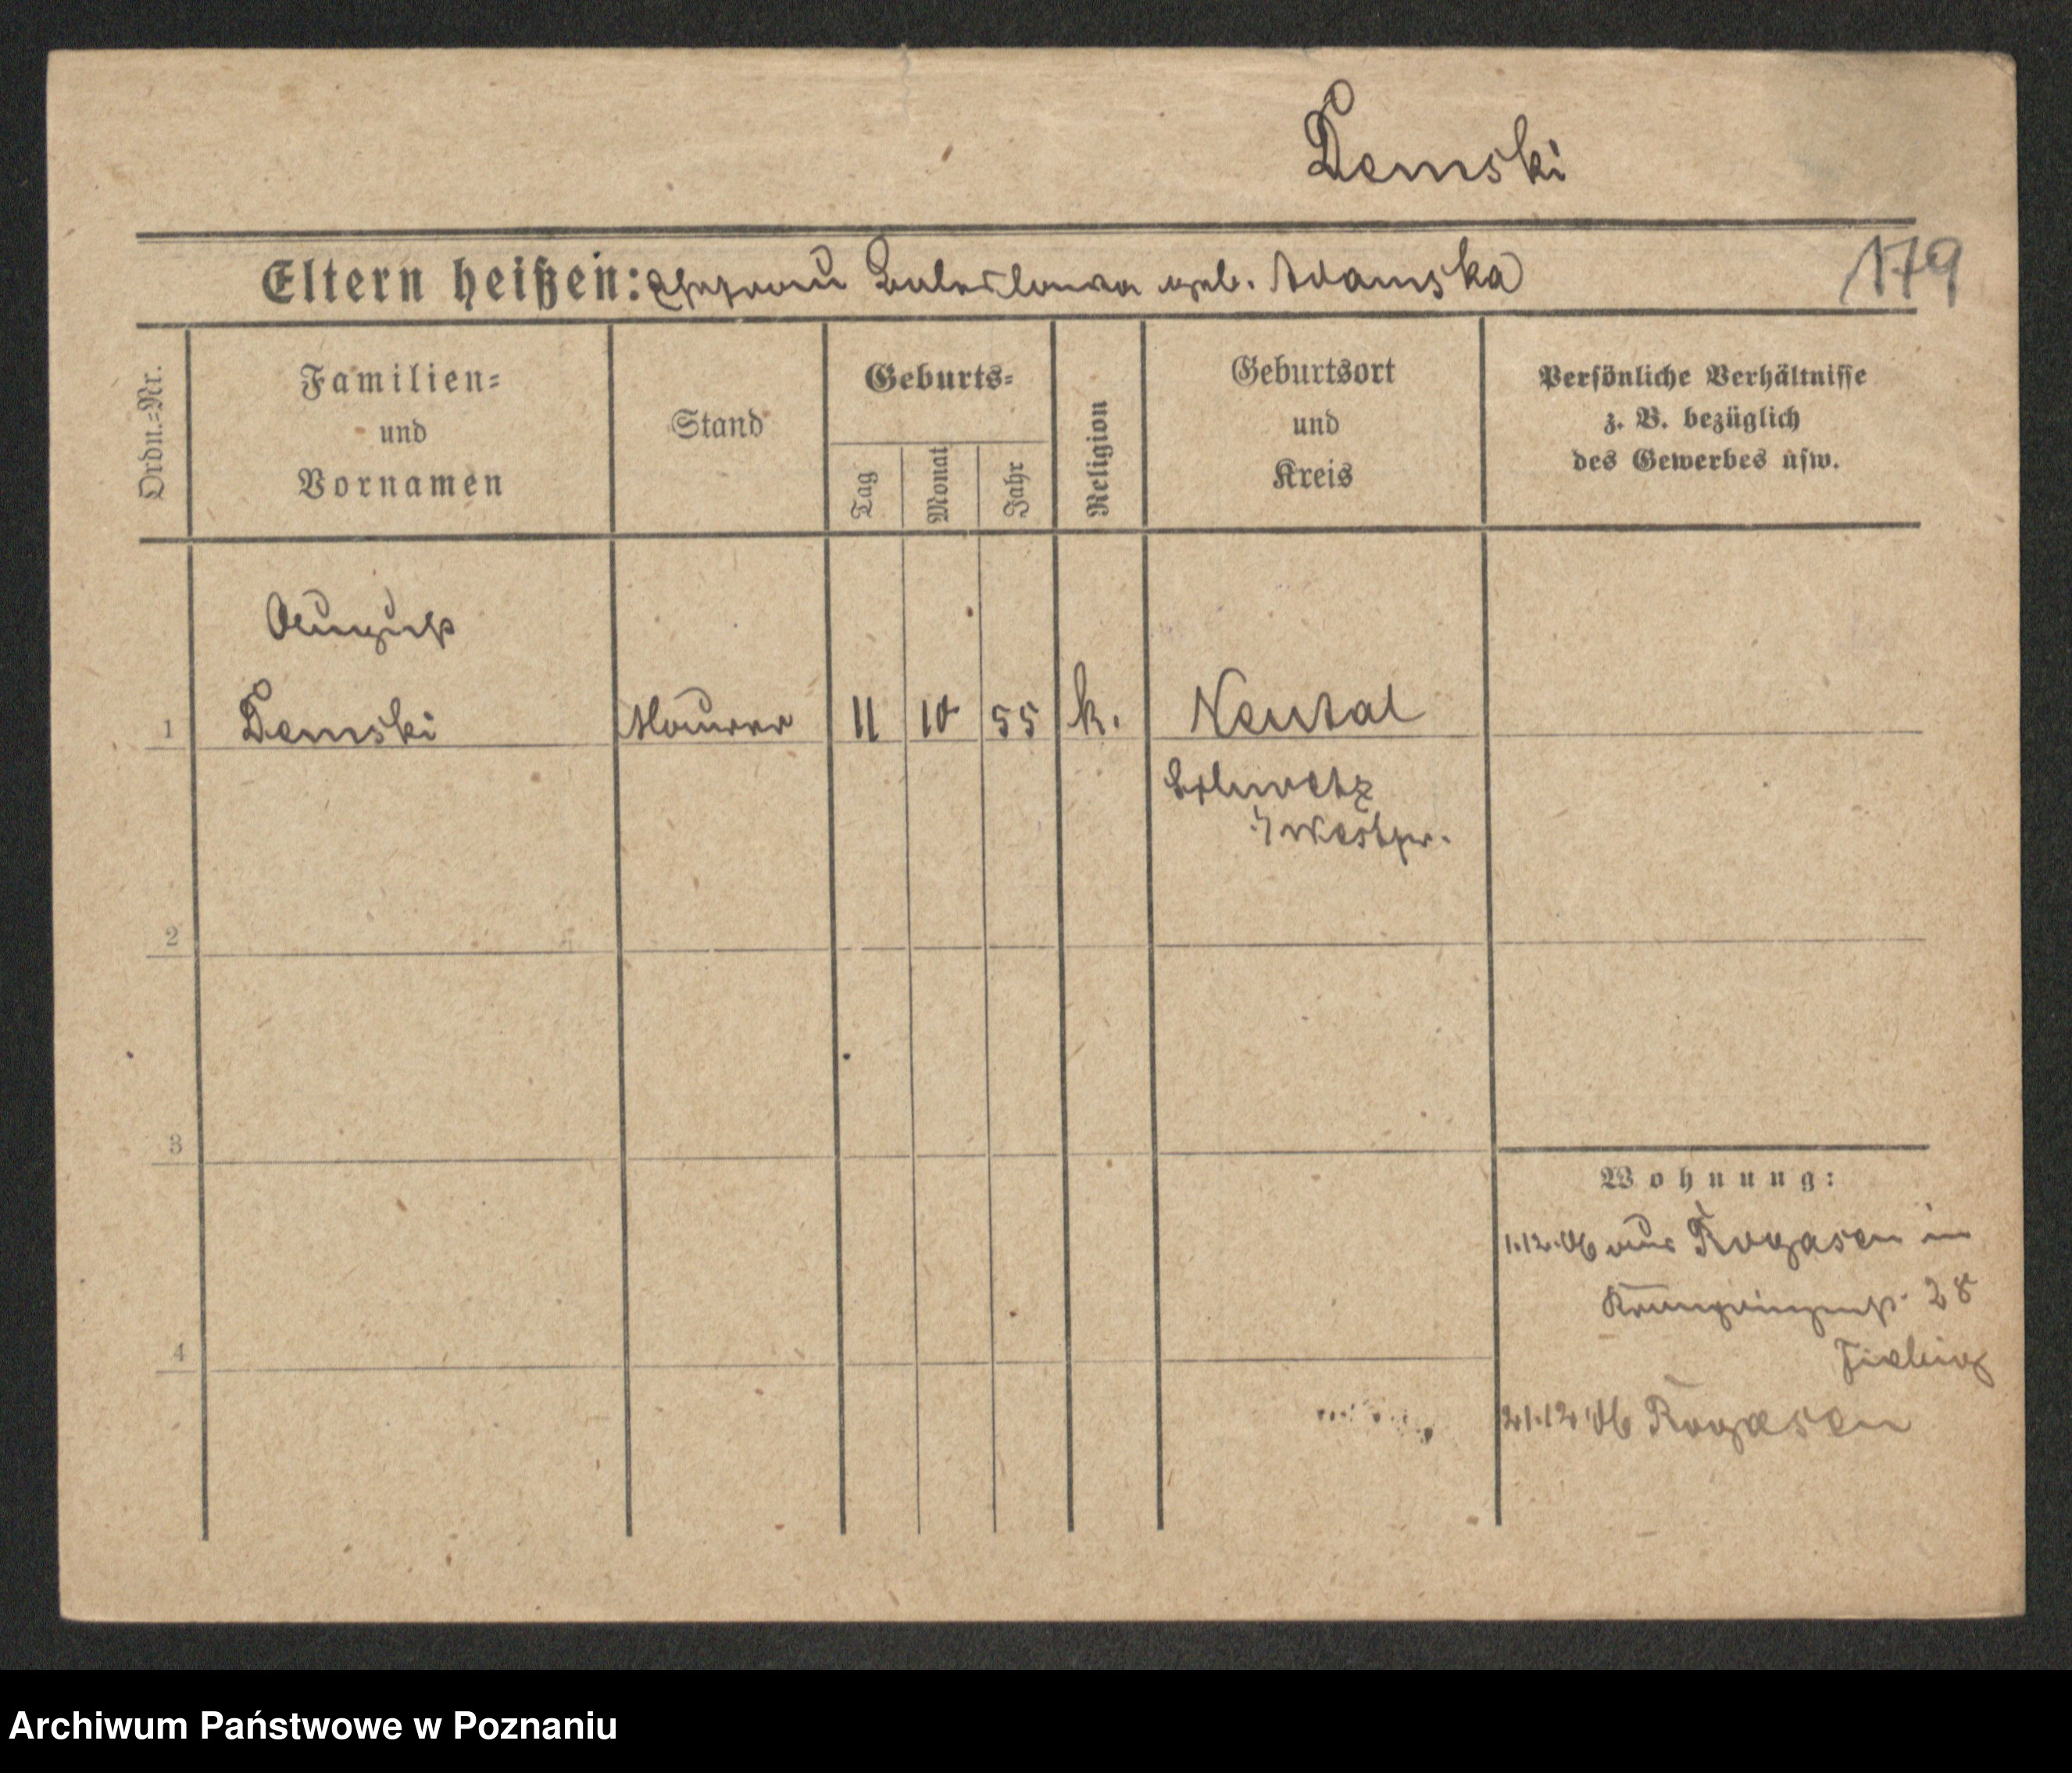 Demski
Eltern heißen: Ehefrau Boleslawa geb. Adamska
179
Ordn.=Nr.
Familien=
und
Vornamen
Stand
Geburts=
Tag
Monat
Jahr
Religion
Geburtsort
und
Kreis
Persönliche Verhältnisse
z. B. bezüglich
des Gewerbes usw.
August
1 Demski Maurer 11 10 55 k. Neutal
Schwetz
Westpr.
2
3
Wohnung:
1.12.06 aus Rogasen in
Kronprinzenst. 28
4
21.12.06 Rogasen
Archiwum Państwowe w Poznaniu